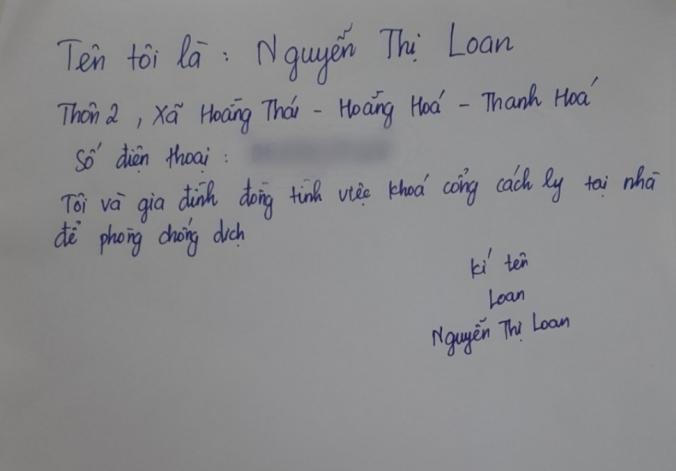 Tên tôi là : Nguyễn Thị Loan
Thôn 2 , xã Hoằng Thái - Hoằng Hoá - Thanh Hoá
Số điện thoại :
Tôi và gia đình đồng tình việc khoá cổng cách ly tại nhà
để phòng chống dịch
kí tên
Loan
Nguyễn Thị Loan